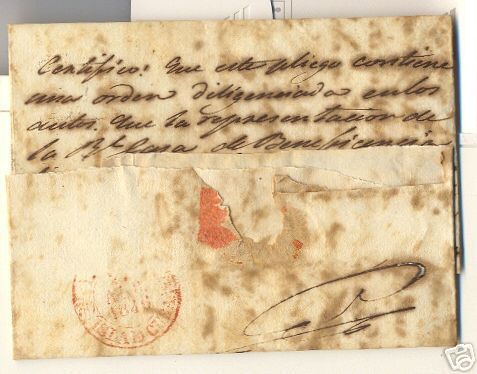 Certifico: que este pliego contiene
una orden diligenciada en los
autos que la representacion de
la Rl. Casa de Beneficencia